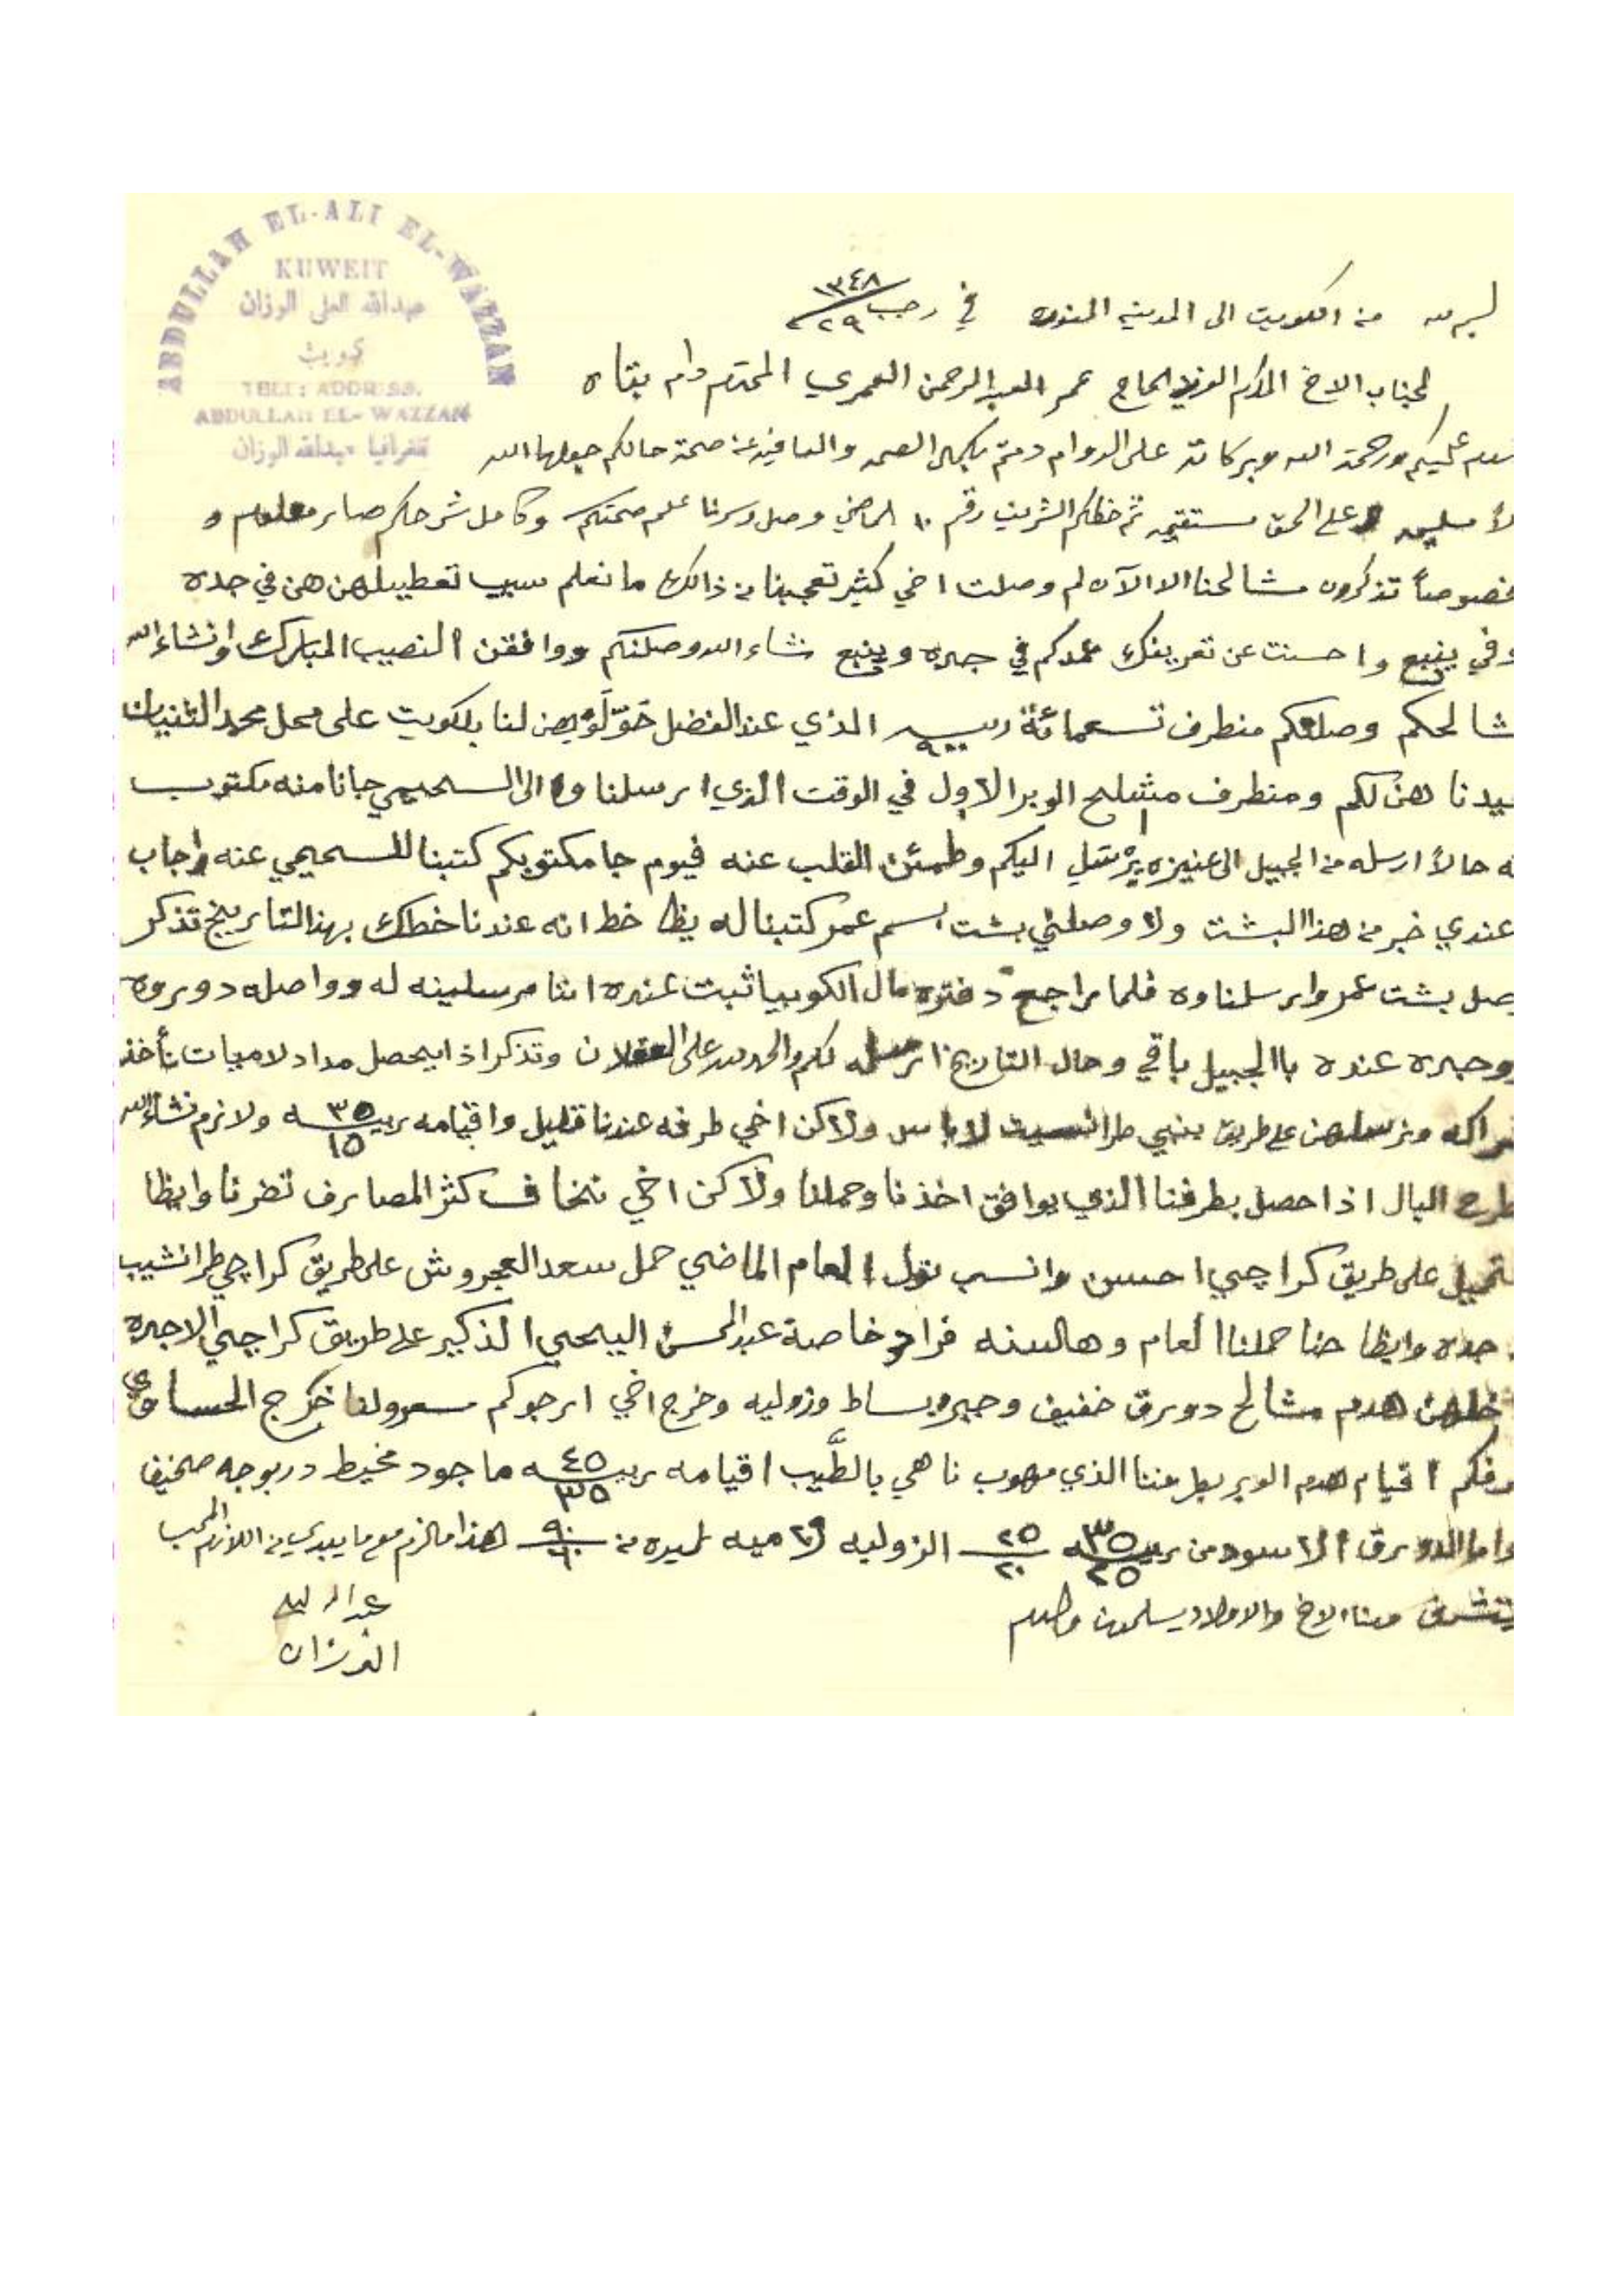 ABDULLAH EL-ALI EL-WAZZAN
KUWEIT
عبدالله العلي الوزان
كويت
TELE: ADDRESS.
ABDULLAH EL-WAZZAN
تلغرافيا عبدالله الوزان
من الكويت الى المدينه المنوره في ٢٩ رجب ١٣٤٨
لجناب الاخ المكرم العزيز الحاج عمر العبدالرحمن العمري المحترم دام بقاه
عليكم ورحمة الله وبركاته على الدوام دمتم بكمال الصحه والعافيه عن صحة حالكم جعلها الله
على الحق مستقيمه ثم خطكم الشريف رقم ١٠ الماضي وصل وسرنا علم صحتكم وكامل شرحكم صار معلوم و
خصوصاً تذكرون مشالحنا الا الآن لم وصلت اخي كثير تعجبنا من ذالك ما نعلم سبب تعطيلهن هن في جده
وفي ينبع واحسنت عن تعريفك عمدكم في جده وينبع نشاء الله وصلنكم ووافقن النصيب المبارك وانشاء الله
مشالحكم وصلنكم منطرف تسعمائة ربيه ٩٠٠ الذي عند الفضل حَوّلَوْ بهن لنا بلكويت على محل محمد الثنيان
قيدنا هن لكم ومنطرف مشلح الوبر الاول في الوقت الذي ارسلناه الى السحيمي جانا منه مكتوب
حالاً ارسله من الجبيل الى عنيزه يرْسَل اليكم وطمئن القلب عنه فيوم جا مكتوبكم كتبنا للسحيمي عنه واجاب
عندي خبر من هذا البشت ولا وصلني بشت بسم عمر كتبنا له يظا خط انه عندنا خطك بهذا التاريخ تذكر
وصل بشت عمر وارسلناوه فلما راجع دفتره مال الكوبيا ثبت عنده اننا مرسلينه له وواصله دوروه
ووجده عنده بالجبيل باقي وحال التاريخ ارسله لكم والحمدلله على وتذكر اذا يحصل مداد لاميات نأخذ
شراكه ونرسلهن على طريق بنبي طرانسيت لاباس ولاكن اخي طرفه عندنا قليل واقيامه ربيه ٣٥ ١٥ ولازم نشاء الله
طرح البال اذا حصل بطرفنا الذي يوافق اخذنا وحملنا ولاكن اخي نخاف كثر المصارف تضرنا وايظا
تحميل على طريق كراچي احسن وانسب نول العام الماضي حمل سعد العجروش على طريق كراچي طرانشيب
جده وايظا حنا حملنا العام وهالسنه فراد خاصة عبدالمحسن اليحيى الذكير على طريق كراچي الاجره
داخلهن هدم مشالح دورق خفيف وحبر وبساط وزوليه وخرج اخي ارجوكم خرج الحساوي
عرفكم اقيام هدم الوبر بطرفنا الذي مهوب ناهي بالطّيب اقيامه ربيه ٤٥ ٣٥ ماجود مخيط دربوجه
واما الدورق الاسود من ربيه ٣٥ ٢٥ ٢٥ ٢٠ الزوليه من ٩٠ ٦٠ هذا مالزم مع ما يبدي من اللازم المحب
منا الاخ والاولاد يسلمون والسلام
عبدالله العلي
الوزان